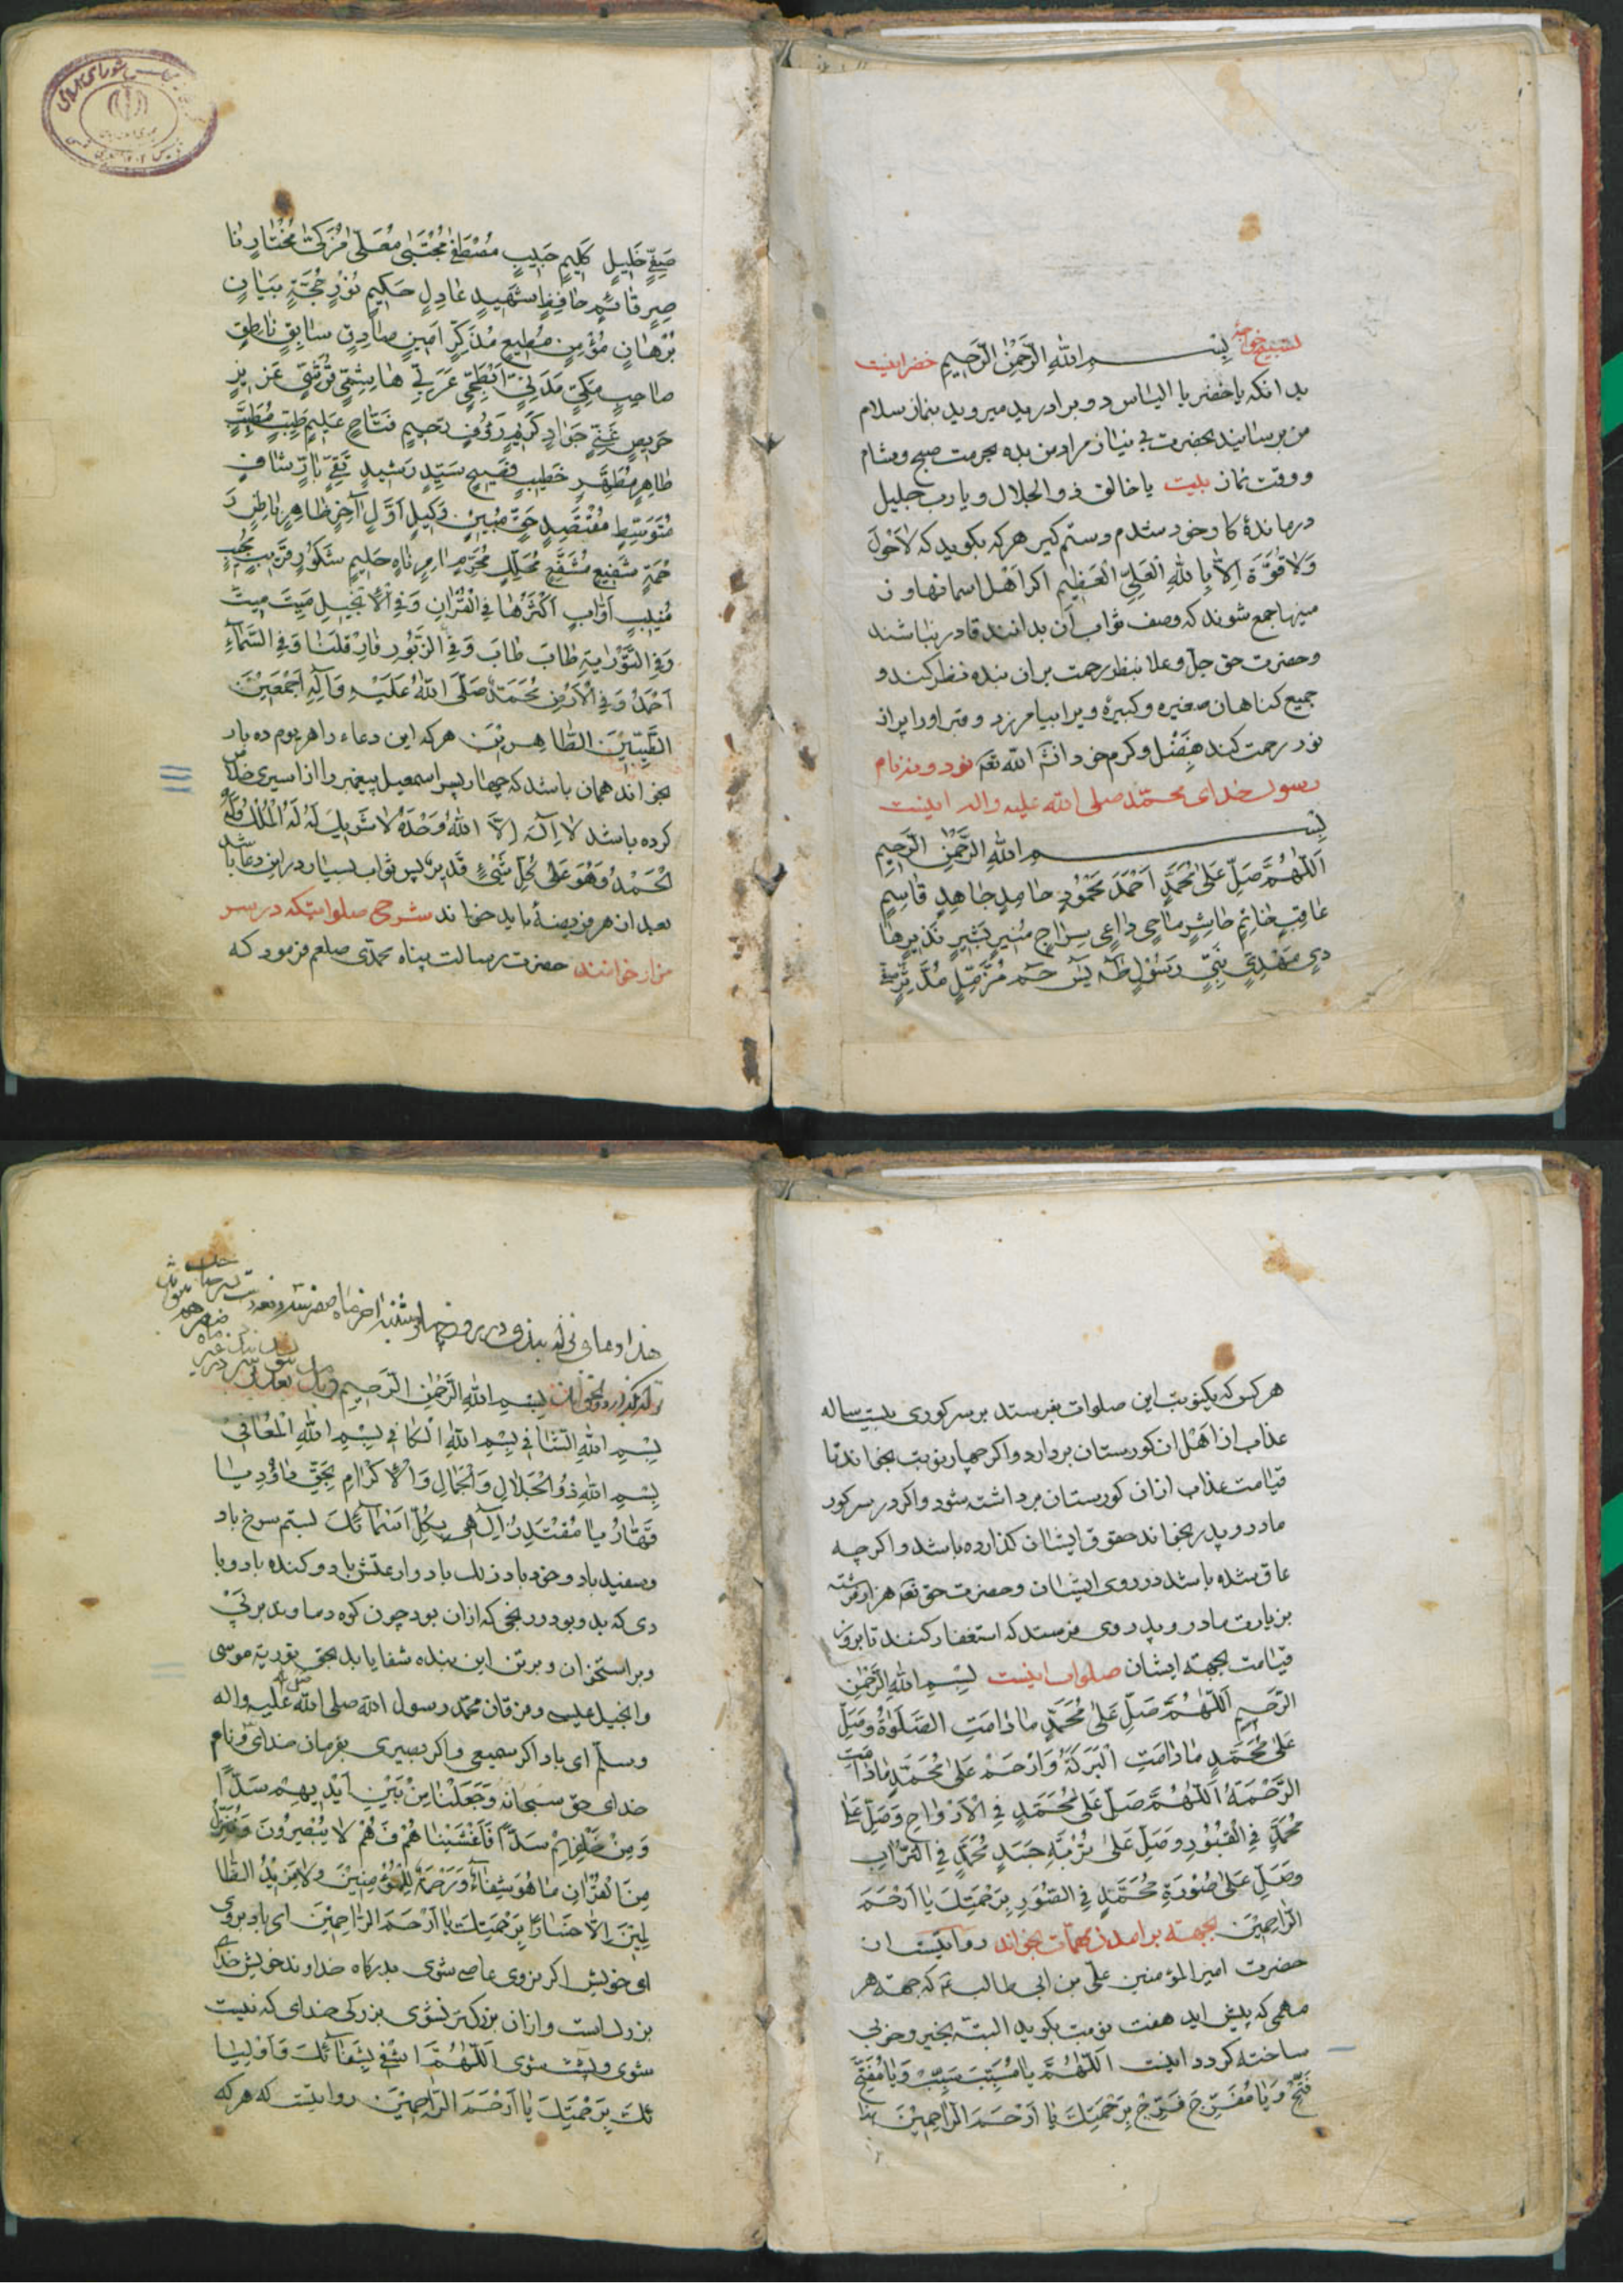 تسبیح خواجهٔ بسم الله الرَّحْمٰنِ الرَّحیمِ خضر اینست
بدانکه یا خضر یا الیاس دو برادرید میروید بنماز سلام
من برسانید بحضرت بی نیاز مراد من بده بحرمت صبح و شام
و وقت نماز بلیت یا خالق ذوالجلال و یا رب جلیل
درماندهٔ کار خود شدم دستم کیر هرکه بکوید که لاٰحَوْلَ
وَلاٰ قُوَّةَ اِلاّٰ بِاللهِ الْعَلِیِّ الْعَظیمِ اکر اهل اسمانها و ز
مینها جمع شوند که وصف ثواب آن بدانند قادر نباشند
و حضرت حق جلّ و علا بنظر رحمت بران بنده نظر کند و
جمیع کناهان صغیره و کبیرهٔ ویرا بیامرزد و قبر اورا پراز
نور رحمت کند بِفَضْل و کرم خود انشٰه الله تعٰه نود و نه نام
رسول خدای محمّد صلی الله علیه و اله اینست
بسم اللهِ الرَّحْمٰنِ الرَّحیمِ
اَللّٰهُمَّ صَلِّ عَلیٰ مُحَمَّدٍ اَحْمَدَ مَحْمُودٍ حٰامِدٍ جٰاهِدٍ قٰاسِمٍ
عٰاقِبٍ خٰاتِمٍ حٰاشِرٍ مٰاحِی دٰاعِی سِرٰاجٍ مُنیرٍ بَشیرٍ نَذیرٍ هٰا
دیٍ مَهْدِیٍّ نَبِیٍّ رَسُولٍ طٰه یٰس حٰم مُزَّمِّلٍ مُدَّثِّرٍ
صَفِیٍّ خَلیلٍ کَلیمٍ حَبیبٍ مُصْطَفیٰ مُجْتَبیٰ مُعَلّیٰ مُزَکّیٰ مُخْتٰارٍ نٰا
صِرٍ قٰائِمٍ حٰافِظٍ شَهیدٍ عٰادِلٍ حَکیمٍ نُورٍ حُجَّةٍ بَیٰانٍ
بُرْهٰانٍ مُؤْمِنٍ مُطیعٍ مُذَکِّرٍ اَمینٍ صٰادِقٍ سٰابِقٍ نٰاطِقٍ
صٰاحِبٍ مَکِّیٍّ مَدَنِیٍّ اَبْطَحِیٍّ عَرَبِیٍّ هٰاشِمِیٍّ قُرَشِیٍّ عَزیزٍ
حَریصٍ غَنِیٍّ جَوٰادٍ کَریمٍ رَؤُفٍ رَحیمٍ فَتّٰاحٍ عَلیمٍ طَیِّبٍ مُطَیَّبٍ
طٰاهِرٍ مُطَهَّرٍ خَطیبٍ فَصیحٍ سَیِّدٍ رَشیدٍ تَقِیٍّ بٰارٍّ شٰافٍ
مُتَوَسِّطٍ مُقْتَصِدٍ حَقٍّ مُبینٍ وَکیلٍ اَوَّلٍ اٰخِرٍ ظٰاهِرٍ بٰاطِنٍ رَ
حْمَةٍ شَفیعٍ مُشَفَّعٍ مُحَلِّلٍ مُحَرِّمٍ اٰمِرٍ نٰاهٍ حَلیمٍ شَکُورٍ قَریبٍ مُجیبٍ
مُنیبٍ اَوّٰابٍ اَکْثَرُهٰا فِی الْقُرْاٰنِ وَفِی الْاِنْجیلِ مَیِتَ مَیِتَ
وَفِی التَّوْرٰیةِ طٰابَ طٰابَ وَفِی الزَّبُورِ فٰارِ قلَیطٰا وَفِی السَّمٰآءِ
اَحْمَدُ وَفِی الْاَرْضِ مُحَمَّدٌ صَلَّی اللهُ عَلَیْهِ وَ اٰلِهِ اَجْمَعینَ
الطَّیِّبینَ الطّٰاهِرینَ هرکه این دعاء را هر یوم ده بار
بخواند همان باشد که چهار پسر اسمعیل پیغمبر را از اسیری خلاص
کرده باشد لاٰ اِلٰهَ اِلاَّ اللهُ وَحْدَهُ لاٰ شَریکَ لَهُ لَهُ الْمُلْکُ وَلَهُ
الْحَمْدُ وَهُوَ عَلیٰ کُلِّ شَیْءٍ قَدیرٌ پس ثواب بسیار در این دعا باشد
بعد از هر فریضهٔ باید خواند شرح صلواتیکه در سر
مزار خوانند حضرت رسالت پناه محمّدی صلعم فرمود که
هر کس که یکنوبت این صلوات بفرستد بر سر کوری بیست ساله
عذاب از اهل ان کورستان بردارد و اکر چهار نوبت بخواند تا
قیامت عذاب ازان کورستان برداشته شود و اکر در سر کور
مادر و پدر بخواند حقوق ایشان کذارده باشد و اکر چه
عاق شده باشد در روی ایشان و حضرت حق تعٰه هزار فرشته
بزیارت مادر و پدر وی فرستد که استغفار کنند تا بروز
قیامت بجهته ایشان صلوات اینست بِسْمِ اللهِ الرَّحْمٰنِ
الرَّحیمِ اَللّٰهُمَّ صَلِّ عَلیٰ مُحَمَّدٍ مٰادٰامَتِ الصَّلَوٰةُ وَصَلِّ
عَلیٰ مُحَمَّدٍ مٰادٰامَتِ الْبَرَکَةُ وَارْحَمْ عَلیٰ مُحَمَّدٍ مٰادٰامَتِ
الرَّحْمَةُ اَللّٰهُمَّ صَلِّ عَلیٰ مُحَمَّدٍ فِی الْاَرْوٰاحِ وَصَلِّ عَلیٰ
مُحَمَّدٍ فِی الْقُبُورِ وَصَلِّ عَلیٰ تُرْبَةِ جَسَدِ مُحَمَّدٍ فِی التُّرٰابِ
وَصَلِّ عَلیٰ صُورَةِ مُحَمَّدٍ فِی الصُّوَرِ بِرَحْمَتِکَ یٰا اَرْحَمَ
الرّٰاحِمینَ بجهته برامدن مهمّات بخواند روایتست از
حضرت امیر المؤمنین علی بن ابی طالب ع که جهته هر
مهمی که پیش اید هفت نوبت بکوید البته بخیر و خوبی
ساخته کردد اینست اَللّٰهُمَّ یٰا مُسَبِّبَ سَبِّبْ وَیٰا مُفَتِّحَ
فَتِّحْ وَیٰا مُفَرِّجَ فَرِّجْ بِرَحْمَتِکَ یٰا اَرْحَمَ الرّٰاحِمینَ هذا
هذا دعای نزله بند و در روز چهارشنبه اخر ماه صفر
بِسْمِ اللهِ الرَّحْمٰنِ الرَّحیمِ
بِسْمِ اللهِ الشّٰافی بِسْمِ اللهِ الْکٰافی بِسْمِ اللهِ الْمُعٰافی
بِسْمِ اللهِ ذُو الْجَلاٰلِ وَالْجَمٰالِ وَالْاِکْرٰامِ بِحَقِّ یٰا
قَهّٰارُ یٰا مُقْتَدِرُ اِلٰهی بِکُلِّ اَسْمٰآئِکَ بستم سرخ باد
و سفید باد و خود باد
دی که بد و بود و رنجی که ازان بود چون کوه دماوند بر پی
و بر استخوان و بر تن این بنده شفا یابد بحق توریة موسی
و انجیل عیسی و فرقان محمّد رسول الله صلی الله علیه و اله
و سلّم ای باد اکر سمیعی و اکر بصیری بفرمان خدای و نام
خدای حق سبحانه وَجَعَلْنٰا مِنْ بَیْنِ اَیْدیهِمْ سَدًّا
وَمِنْ خَلْفِهِمْ سَدًّا فَاَغْشَیْنٰاهُمْ فَهُمْ لاٰ یُبْصِرُونَ وَنُنَزِّلُ
مِنَ الْقُرْاٰنِ مٰا هُوَ شِفٰآءٌ وَرَحْمَةٌ لِلْمُؤْمِنینَ وَلاٰ یَزیدُ الظّٰا
لِمینَ اِلاّٰ خَسٰارًا بِرَحْمَتِکَ یٰا اَرْحَمَ الرّٰاحِمینَ ای باد بروی
ای خویش اکر نروی عاصی شوی بدرکاه خداوند خویش خدای
بزرکست و ازان بزرکتر نشوی بزرکی خدای که نیست
شوی و پست شوی اَللّٰهُمَّ اشْفِ بِشِفٰآئِکَ وَ اَوْلِیٰا
ئِکَ بِرَحْمَتِکَ یٰا اَرْحَمَ الرّٰاحِمینَ روایتست که هر که